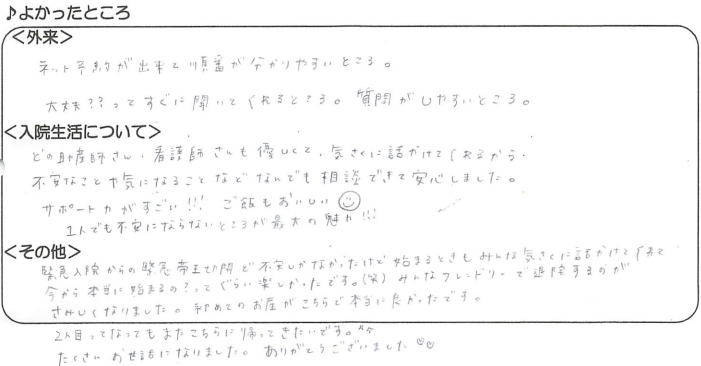 ♪よかったところ
＜外来＞
ネット予約が出来て順番が分かりやすいところ。
大丈夫??ってすぐに聞いてくれるところ。質問がしやすいところ。
＜入院生活について＞
どの助産師さん、看護師さんも優しくて、気さくに話かけてくれるから
不安なことや気になることなどなんでも相談できて安心しました。
サポート力がすごい!!! ご飯もおいしい☺
1人でも不安にならないところが最大の魅力!!!
＜その他＞
緊急入院からの緊急帝王切開で不安しかなかったけど始まるときもみんな気さくに話かけてくれて
今から本当に始まるの?ってぐらい楽しかったです。(笑) みんなフレンドリーで退院するのが
さみしくなりました。初めてのお産がこちらで本当に良かったです。
2人目ってなってもまたこちらに帰ってきたいです。
たくさんお世話になりました。ありがとうございました♡♡